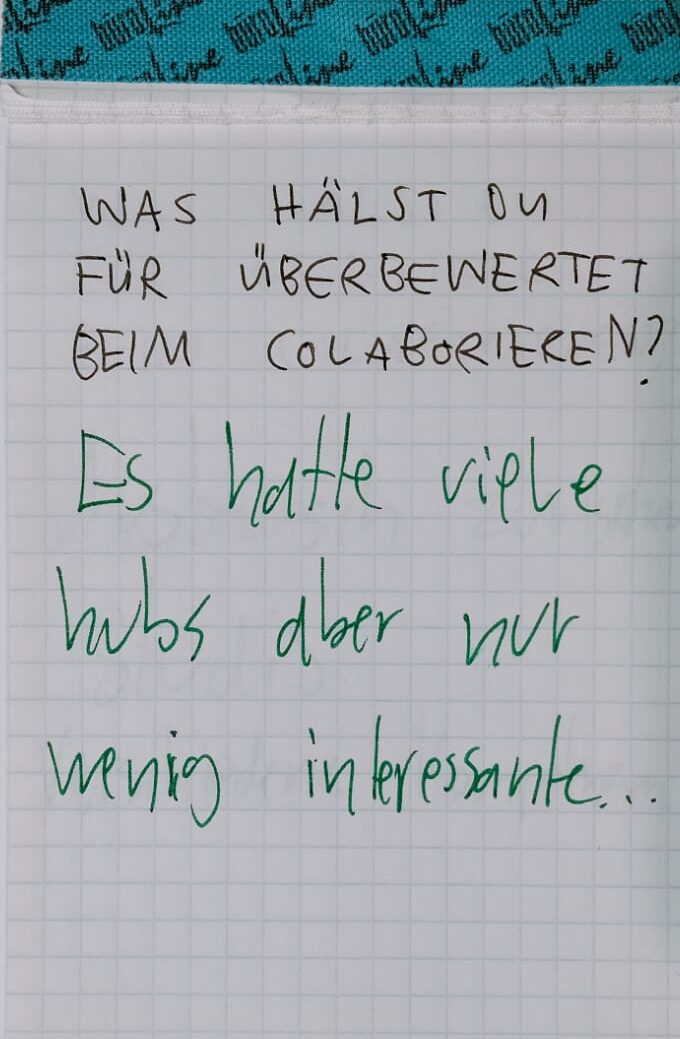 büroline büroline büroline büroline büroline
WAS HÄLST DU
FÜR ÜBERBEWERTET
BEIM COLABORIEREN?
Es hatte viele
hubs aber nur
wenig interessante...